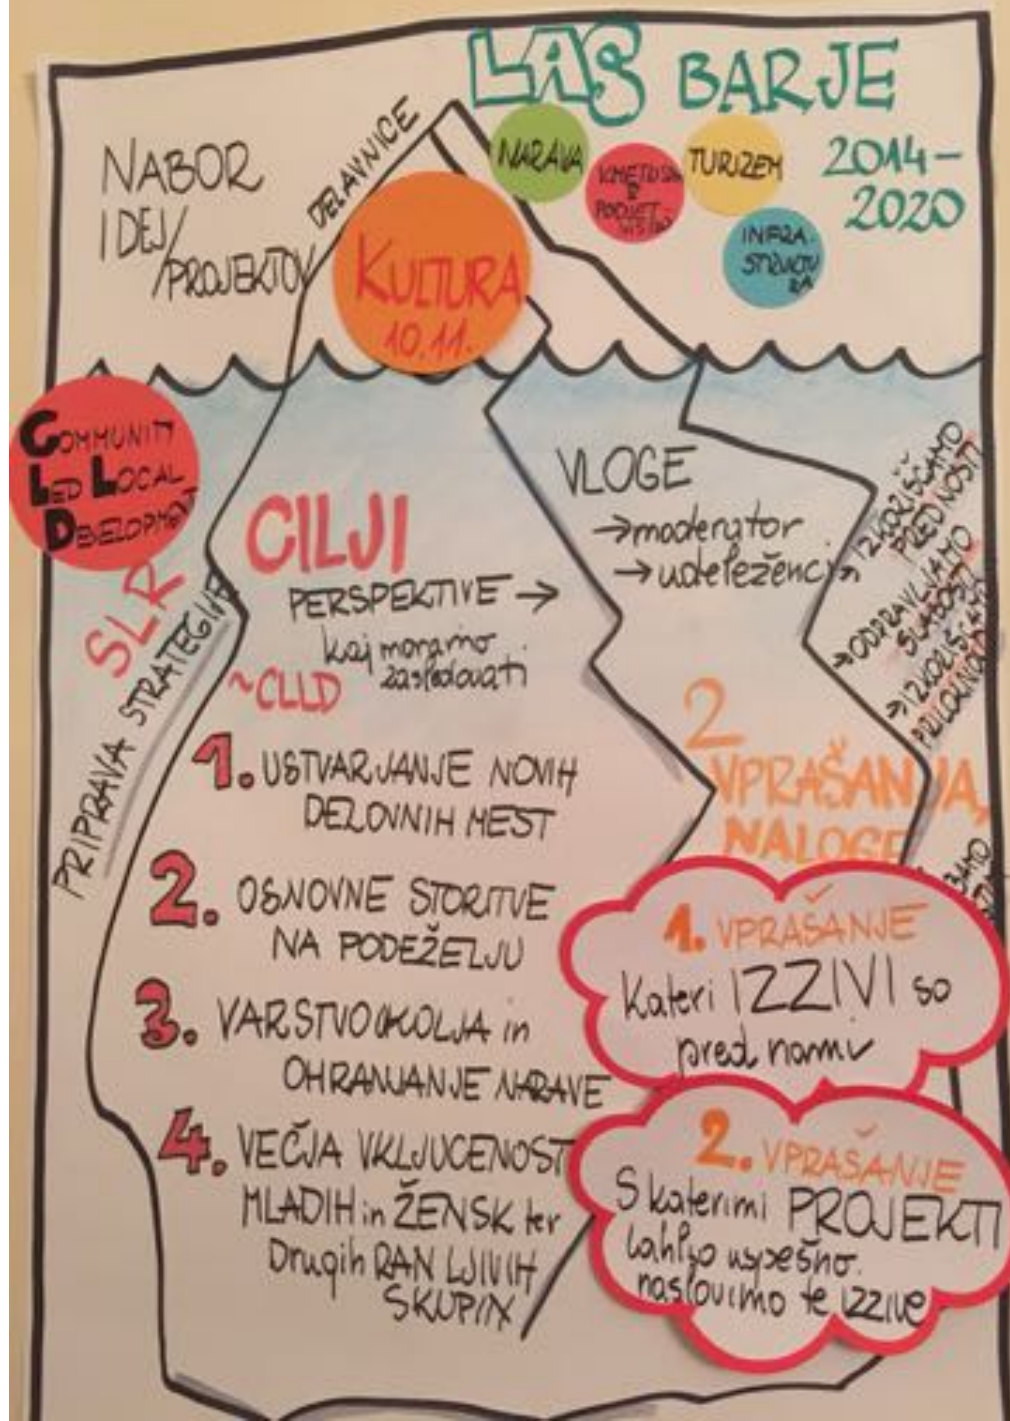 LAS BARJE
2014-
2020
NABOR
IDEJ/
/PROJEKTOV
DELAVNICE
NARAVA
TURIZEM
INFRA-
STRUKTU
RA
KULTURA
10.11.
COMMUNITY
LED LOCAL
DEVELOPMENT
SLR
PRIPRAVA STRATEGIJE
CILJI
PERSPEKTIVE →
kaj moramo
zasledovati
~CLLD
1. USTVARJANJE NOVIH
DELOVNIH MEST
2. OSNOVNE STORITVE
NA PODEŽELJU
3. VARSTVO OKOLJA in
OHRANJANJE NARAVE
4. VEČJA VKLJUCENOST
MLADIH in ŽENSK ter
Drugih RANLJIVIH
SKUPIN
VLOGE
→ moderator
→ udeleženci
→ IZKORIŠČAMO
PREDNOSTI
→ ODPRAVLJAMO
SLABOSTI
→ IZKORIŠČAMO
PRILOŽNOSTI
2
VPRAŠANJA,
NALOGE
1. VPRAŠANJE
Kateri IZZIVI so
pred nami
2. VPRAŠANJE
S katerimi PROJEKTI
lahko uspešno
naslovimo te IZZIVE